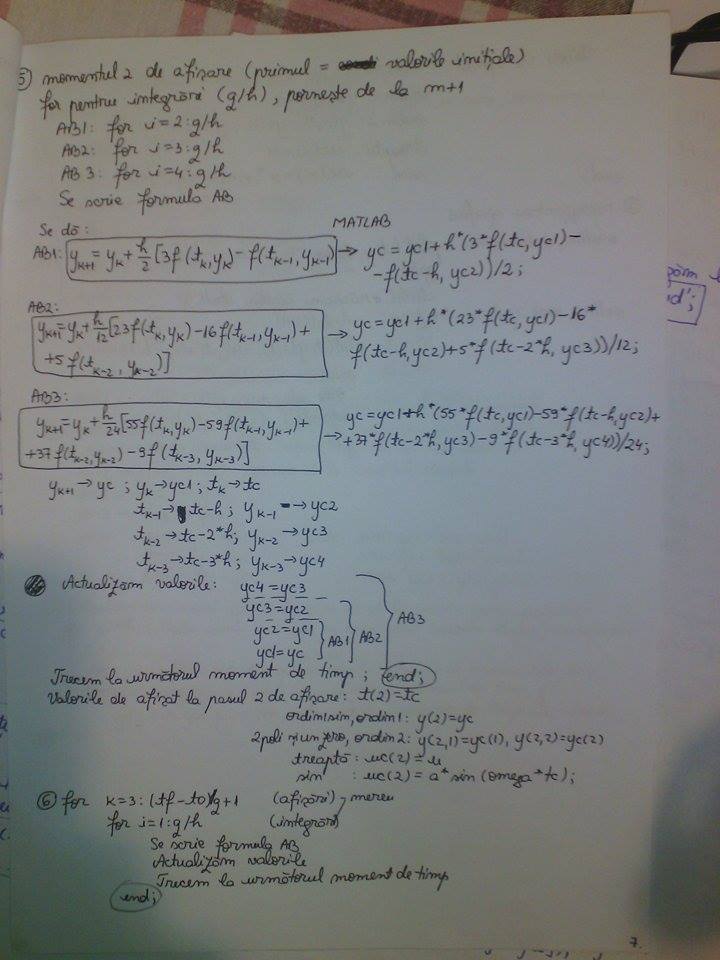 ⑤ momentul 2 de afișare (primul = valorile inițiale)
for pentru integrări (g/h), pornește de la m+1
AB1: for i=2:g/h
AB2: for i=3:g/h
AB3: for i=4:g/h
Se scrie formula AB
Se dă: MATLAB
AB1: y_{k+1} = y_k + h/2 [3f(t_k, y_k) - f(t_{k-1}, y_{k-1}) → yc = yc1+h*(3*f(tc, yc1)-
-f(tc-h, yc2))/2;
AB2:
y_{k+1}=y_k+h/12[23f(t_k,y_k)-16f(t_{k-1},y_{k-1})+ → yc=yc1+h*(23*f(tc,yc1)-16*
+5f(t_{k-2}, y_{k-2})] f(tc-h,yc2)+5*f(tc-2*h, yc3))/12;
AB3:
y_{k+1}=y_k+h/24[55f(t_k,y_k)-59f(t_{k-1},y_{k-1})+ → yc=yc1+h*(55*f(tc,yc1)-59*f(tc-h,yc2)+
+37f(t_{k-2},y_{k-2})-9f(t_{k-3}, y_{k-3})] +37*f(tc-2*h, yc3)-9*f(tc-3*h, yc4))/24;
y_{k+1} → yc ; y_k → yc1 ; t_k → tc
t_{k-1} → tc-h; y_{k-1} → yc2
t_{k-2} → tc-2*h; y_{k-2} → yc3
t_{k-3} → tc-3*h; y_{k-3} → yc4
Actualizăm valorile: yc4=yc3
yc3=yc2
yc2=yc1
yc1=yc
AB1 AB2 AB3
Trecem la următorul moment de timp ; end;
Valorile de afișat la pasul 2 de afișare: t(2)=tc
ordin1sin, ordin1: y(2)=yc
2poli și un zero, ordin2: y(2,1)=yc(1), y(2,2)=yc(2)
treaptă: uc(2)=u
sin : uc(2)=a*sin(omega*tc);
⑥ for k=3:(tf-t0)/g+1 (afișări) mereu
for i=1:g/h (integrări)
Se scrie formula AB
Actualizăm valorile
Trecem la următorul moment de timp
end;
7.